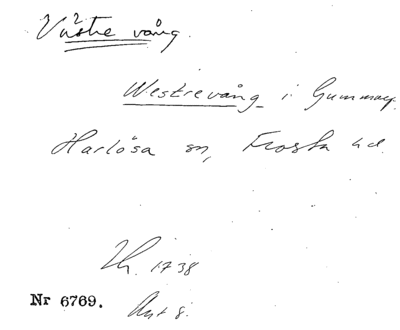 Västre vång.
Westrevång i Gummary.
Harlösa sn, Frosta hd.
Lh. 1738
Nr 6769. Akt 8.